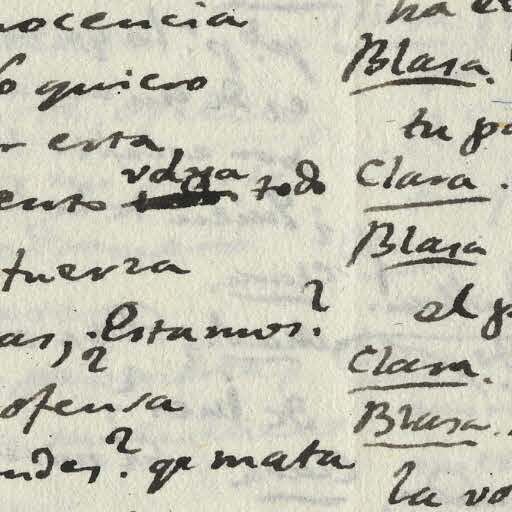 nocencia
lo quiero
r esta
valga
ento todo
fuerza
as, ¿Estamos?
ofensa
ndes? qe mata
ha e
Blasa.
tu pa
Clara.
Blasa
el p
Clara.
Blasa.
la vo